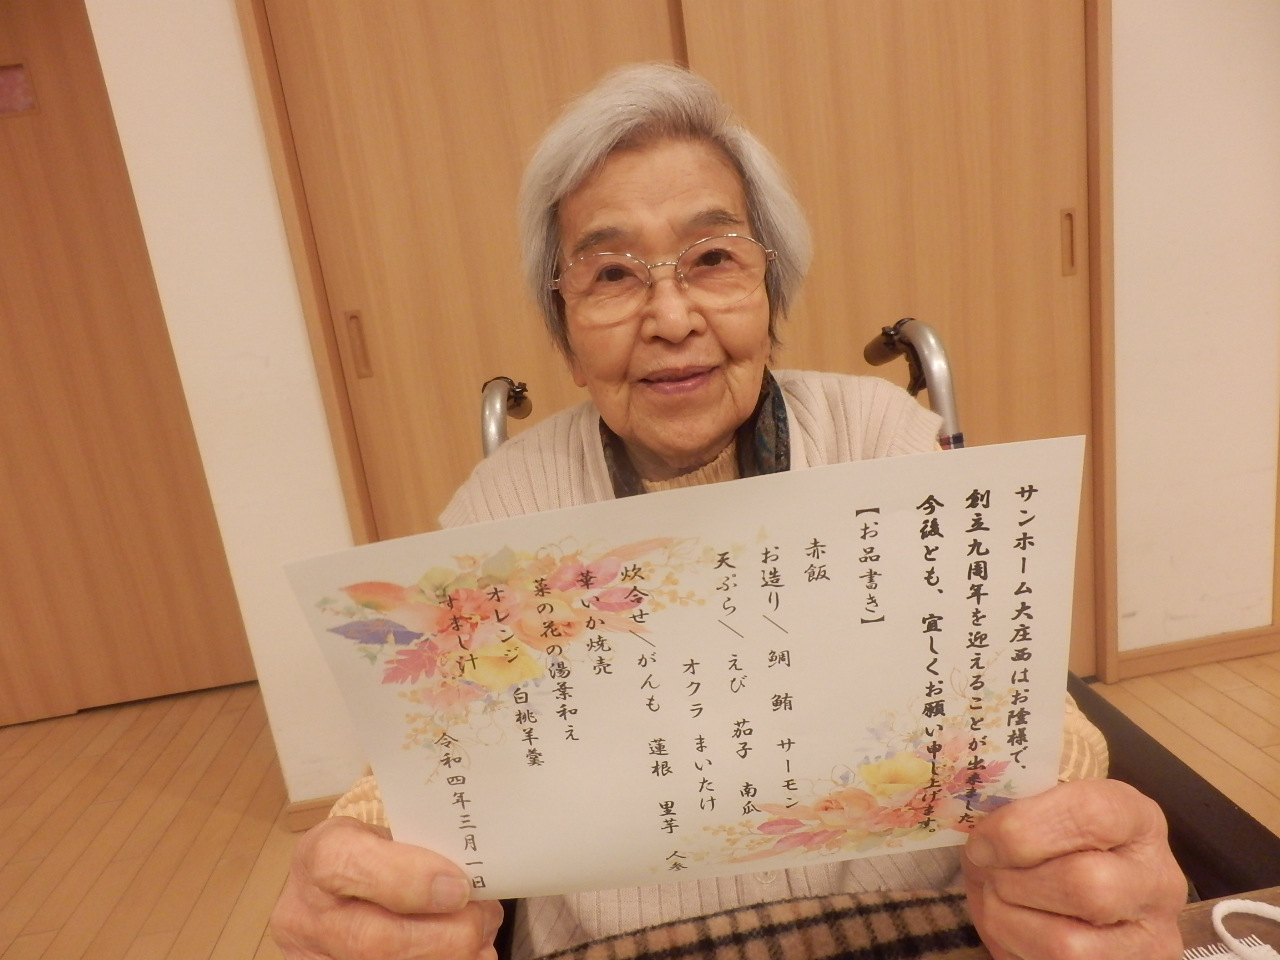 サンホーム大庄西はお陰様で、
創立九周年を迎えることが出来ました。
今後とも、宜しくお願い申し上げます。
【お品書き】
赤飯
お造り＼ 鯛 鮪 サーモン
天ぷら＼ えび 茄子 南瓜
オクラ まいたけ
炊合せ＼がんも 蓮根 里芋 人参
華いか焼売
菜の花の湯葉和え
オレンジ 白桃羊羹
すまし汁
令和四年三月一日